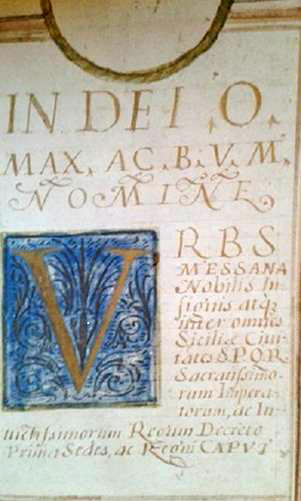 IN DEI . O.
MAX. AC. B. V. M.
NOMINE,
VRBS
MESSANA
Nobilis In-
signis atq3
inter omnes
Siciliæ Ciui-
tates S.P.Q.R
Sacratissimo-
rum Impera-
torum, ac In-
uictissimorum Regum Decreto
Prima Sedes, ac Regni CAPVT